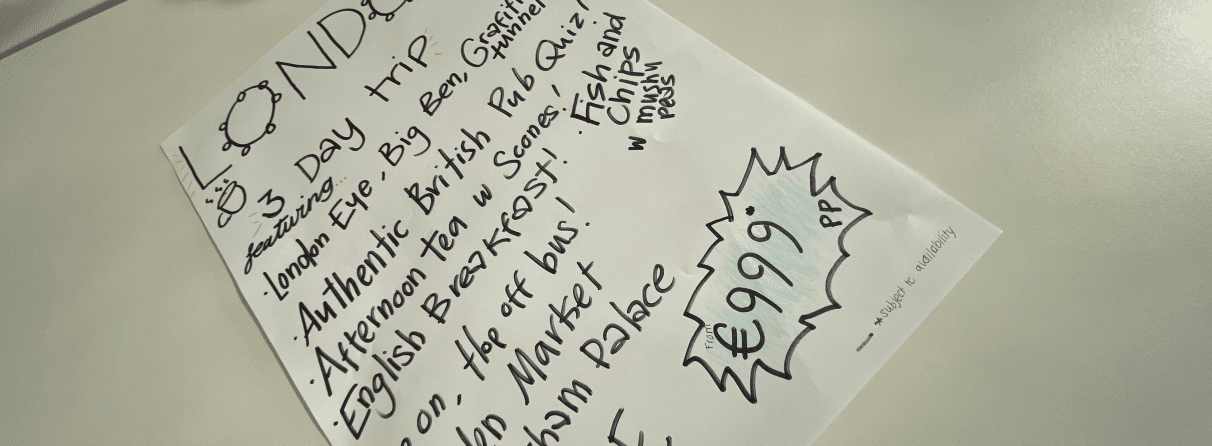 LONDO
3 Day trip
featuring...
· London Eye, Big Ben, Grafiti tunnel
· Authentic British Pub Quiz!
· Afternoon Tea w Scones!
· English Breakfast!
on, Hop off bus!
Market
ham Palace
· Fish and
Chips
w mushy
peas
From:
€999*
PP
*subject to availability